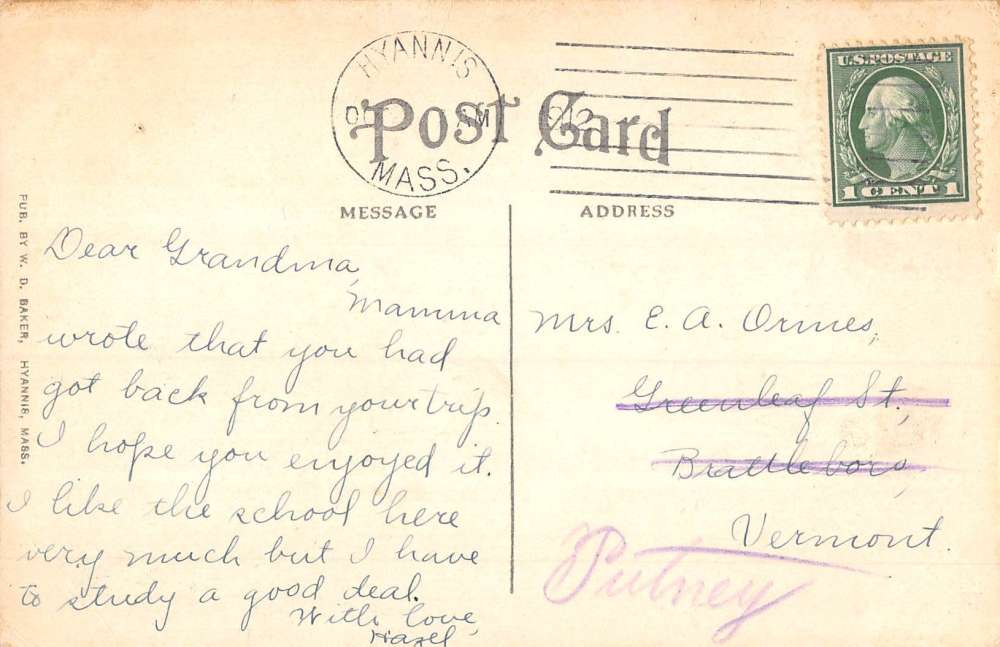 HYANNIS
MASS.
AM
1912
Post Card
U.S. POSTAGE
1 CENT 1
MESSAGE
ADDRESS
PUB. BY W. D. BAKER, HYANNIS, MASS.
Dear Grandma,
Mamma
wrote that you had
got back from your trip.
I hope you enjoyed it.
I like the school here
very much but I have
to study a good deal.
With love,
Hazel
Mrs. E. A. Ormes,
Greenleaf St.,
Brattleboro,
Vermont.
Putney